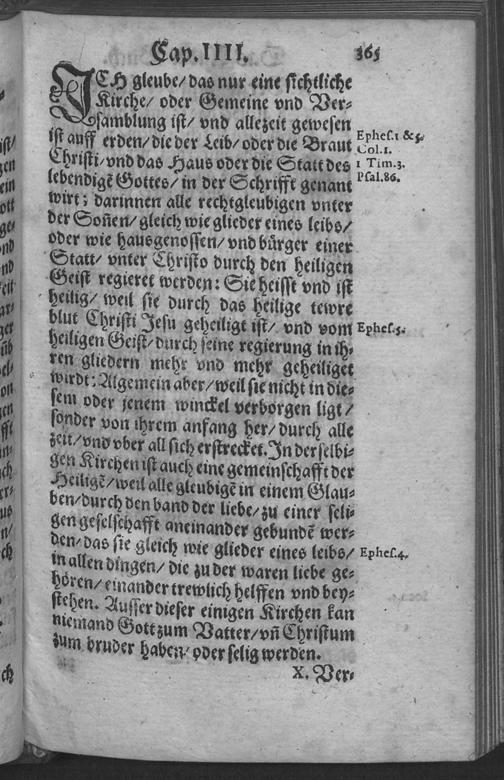 Cap. IIII. 365
ICH gleube/ das nur eine sichtliche
Kirche/ oder Gemeine vnd Ver-
samblung ist/ vnd allezeit gewesen
ist auff erden/ die der Leib/ oder die Braut
Ephes.1 & 5.
Christi/ vnd das Haus oder die Statt des
Col.1.
1 Tim.3.
lebendigē Gottes/ in der Schrifft genant
Psal.86.
wirt; darinnen alle rechtgleubigen vnter
der Soñen/ gleich wie glieder eines leibs/
oder wie hausgenossen/ vnd bürger einer
Statt/ vnter Christo durch den heiligen
Geist regieret werden: Sie heisst vnd ist
heilig/ weil sie durch das heilige tewre
blut Christi Jesu geheiligt ist/ vnd vom
Ephes.5.
heiligen Geist/ durch seine regierung in ih-
ren gliedern mehr vnd mehr geheiliget
wirdt: Algemein aber/ weil sie nicht in die-
sem oder jenem winckel verborgen ligt/
sonder von ihrem anfang her/ durch alle
zeit/ vnd vber all sich erstrecket. In derselbi-
gen Kirchen ist auch eine gemeinschafft der
Heiligē/ weil alle gleubigē in einem Glau-
ben/ durch den band der liebe/ zu einer seli-
gen geselschafft aneinander gebundē wer-
den/ das sie gleich wie glieder eines leibs/
Ephes.4.
in allen dingen/ die zu der waren liebe ge-
hören/ einander trewlich helffen vnd bey-
stehen. Ausser dieser einigen Kirchen kan
niemand Gott zum Vatter/ vñ Christum
zum bruder haben/ oder selig werden.
X. Ver-